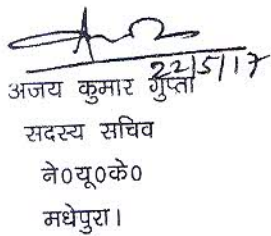 22/5/17
अजय कुमार गुप्ता
सदस्य सचिव
ने०यू०के०
मधेपुरा।